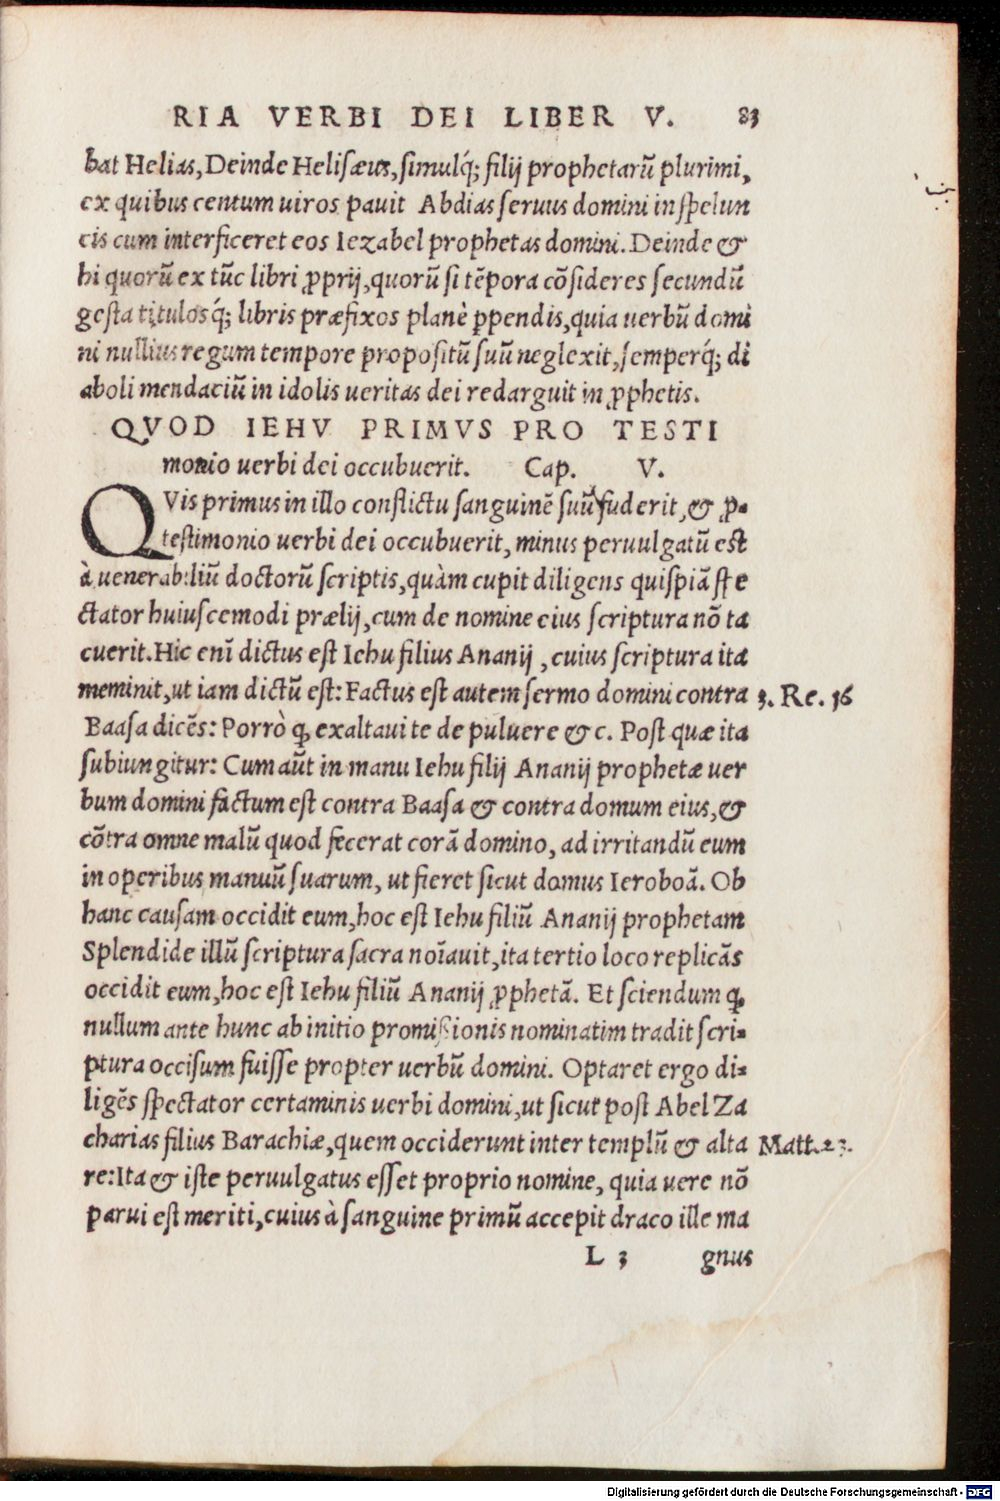 RIA VERBI DEI LIBER V. 83
bat Helias, Deinde Helisæus, simulq́; filij prophetarũ plurimi,
ex quibus centum uiros pavit Abdias seruus domini in spelun
cis cum interficeret eos Iezabel prophetas domini. Deinde &
hi quorũ ex tũc libri ꝓprij, quorũ si tẽpora cõsideres secundũ
gesta titulosq́; libris præfixos planè ꝑpendis, quia uerbũ domi
ni nullius regum tempore propositũ suũ neglexit, semperq́; di
aboli mendaciũ in idolis ueritas dei redarguit in ꝓphetis.
QVOD IEHV PRIMVS PRO TESTI
monio uerbi dei occubuerit. Cap. V.
QVis primus in illo conflictu sanguinẽ suũ fuderit, & ꝓ-
testimonio uerbi dei occubuerit, minus peruulgatũ est
à uenerabiliũ doctorũ scriptis, quàm cupit diligens quispiã spe
ctator huiuscemodi prælij, cum de nomine eius scriptura nõ ta
cuerit. Hic enĩ dictus est Iehu filius Ananij, cuius scriptura ita
meminit, ut iam dictũ est: Factus est autem sermo domini contra 3. Re. 16
Baasa dicẽs: Porrò ꝙ exaltaui te de puluere & c. Post quæ ita
subiungitur: Cum aũt in manu Iehu filij Ananij prophetæ uer
bum domini factum est contra Baasa & contra domum eius, &
cõtra omne malũ quod fecerat corã domino, ad irritandũ eum
in operibus manuũ suarum, ut fieret sicut domus Ieroboã. Ob
hanc causam occidit eum, hoc est Iehu filiũ Ananij prophetam
Splendide illũ scriptura sacra noĩauit, ita tertio loco replicãs
occidit eum, hoc est Iehu filiũ Ananij ꝓphetã. Et sciendum ꝙ
nullum ante hunc ab initio promißionis nominatim tradit scri-
ptura occisum fuisse propter uerbũ domini. Optaret ergo di-
ligẽs spectator certaminis uerbi domini, ut sicut post Abel Za
charias filius Barachiæ, quem occiderunt inter templũ & alta Matt. 23.
re: Ita & iste peruulgatus esset proprio nomine, quia uere nõ
parui est meriti, cuius à sanguine primũ accepit draco ille ma
L 3 gnus
Digitalisierung gefördert durch die Deutsche Forschungsgemeinschaft - DFG